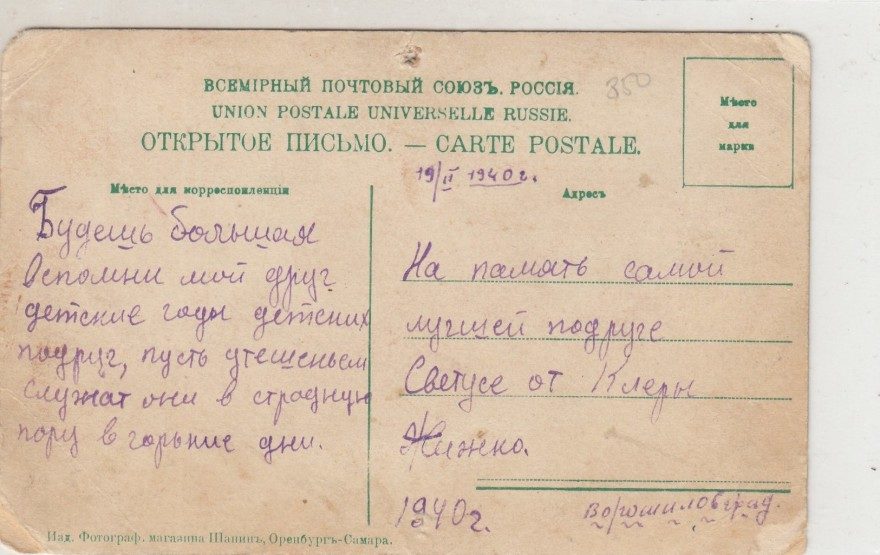 350
ВСЕМІРНЫЙ ПОЧТОВЫЙ СОЮЗЪ. РОССІЯ.
UNION POSTALE UNIVERSELLE RUSSIE.
ОТКРЫТОЕ ПИСЬМО. — CARTE POSTALE.
Мѣсто
для
марки
19/II 1940 г.
Мѣсто для корреспонденціи
Адресъ
Будешь большая
вспомни мой друг
детские годы детских
подруг, пусть утешеньем
служат они в страдную
пору в горькие дни.
На память самой
лучшей подруге
Светусе от Клеры
Жижко.
1940 г.
Ворошиловград.
Изд. Фотограф. магазина Шанинъ, Оренбургъ-Самара.